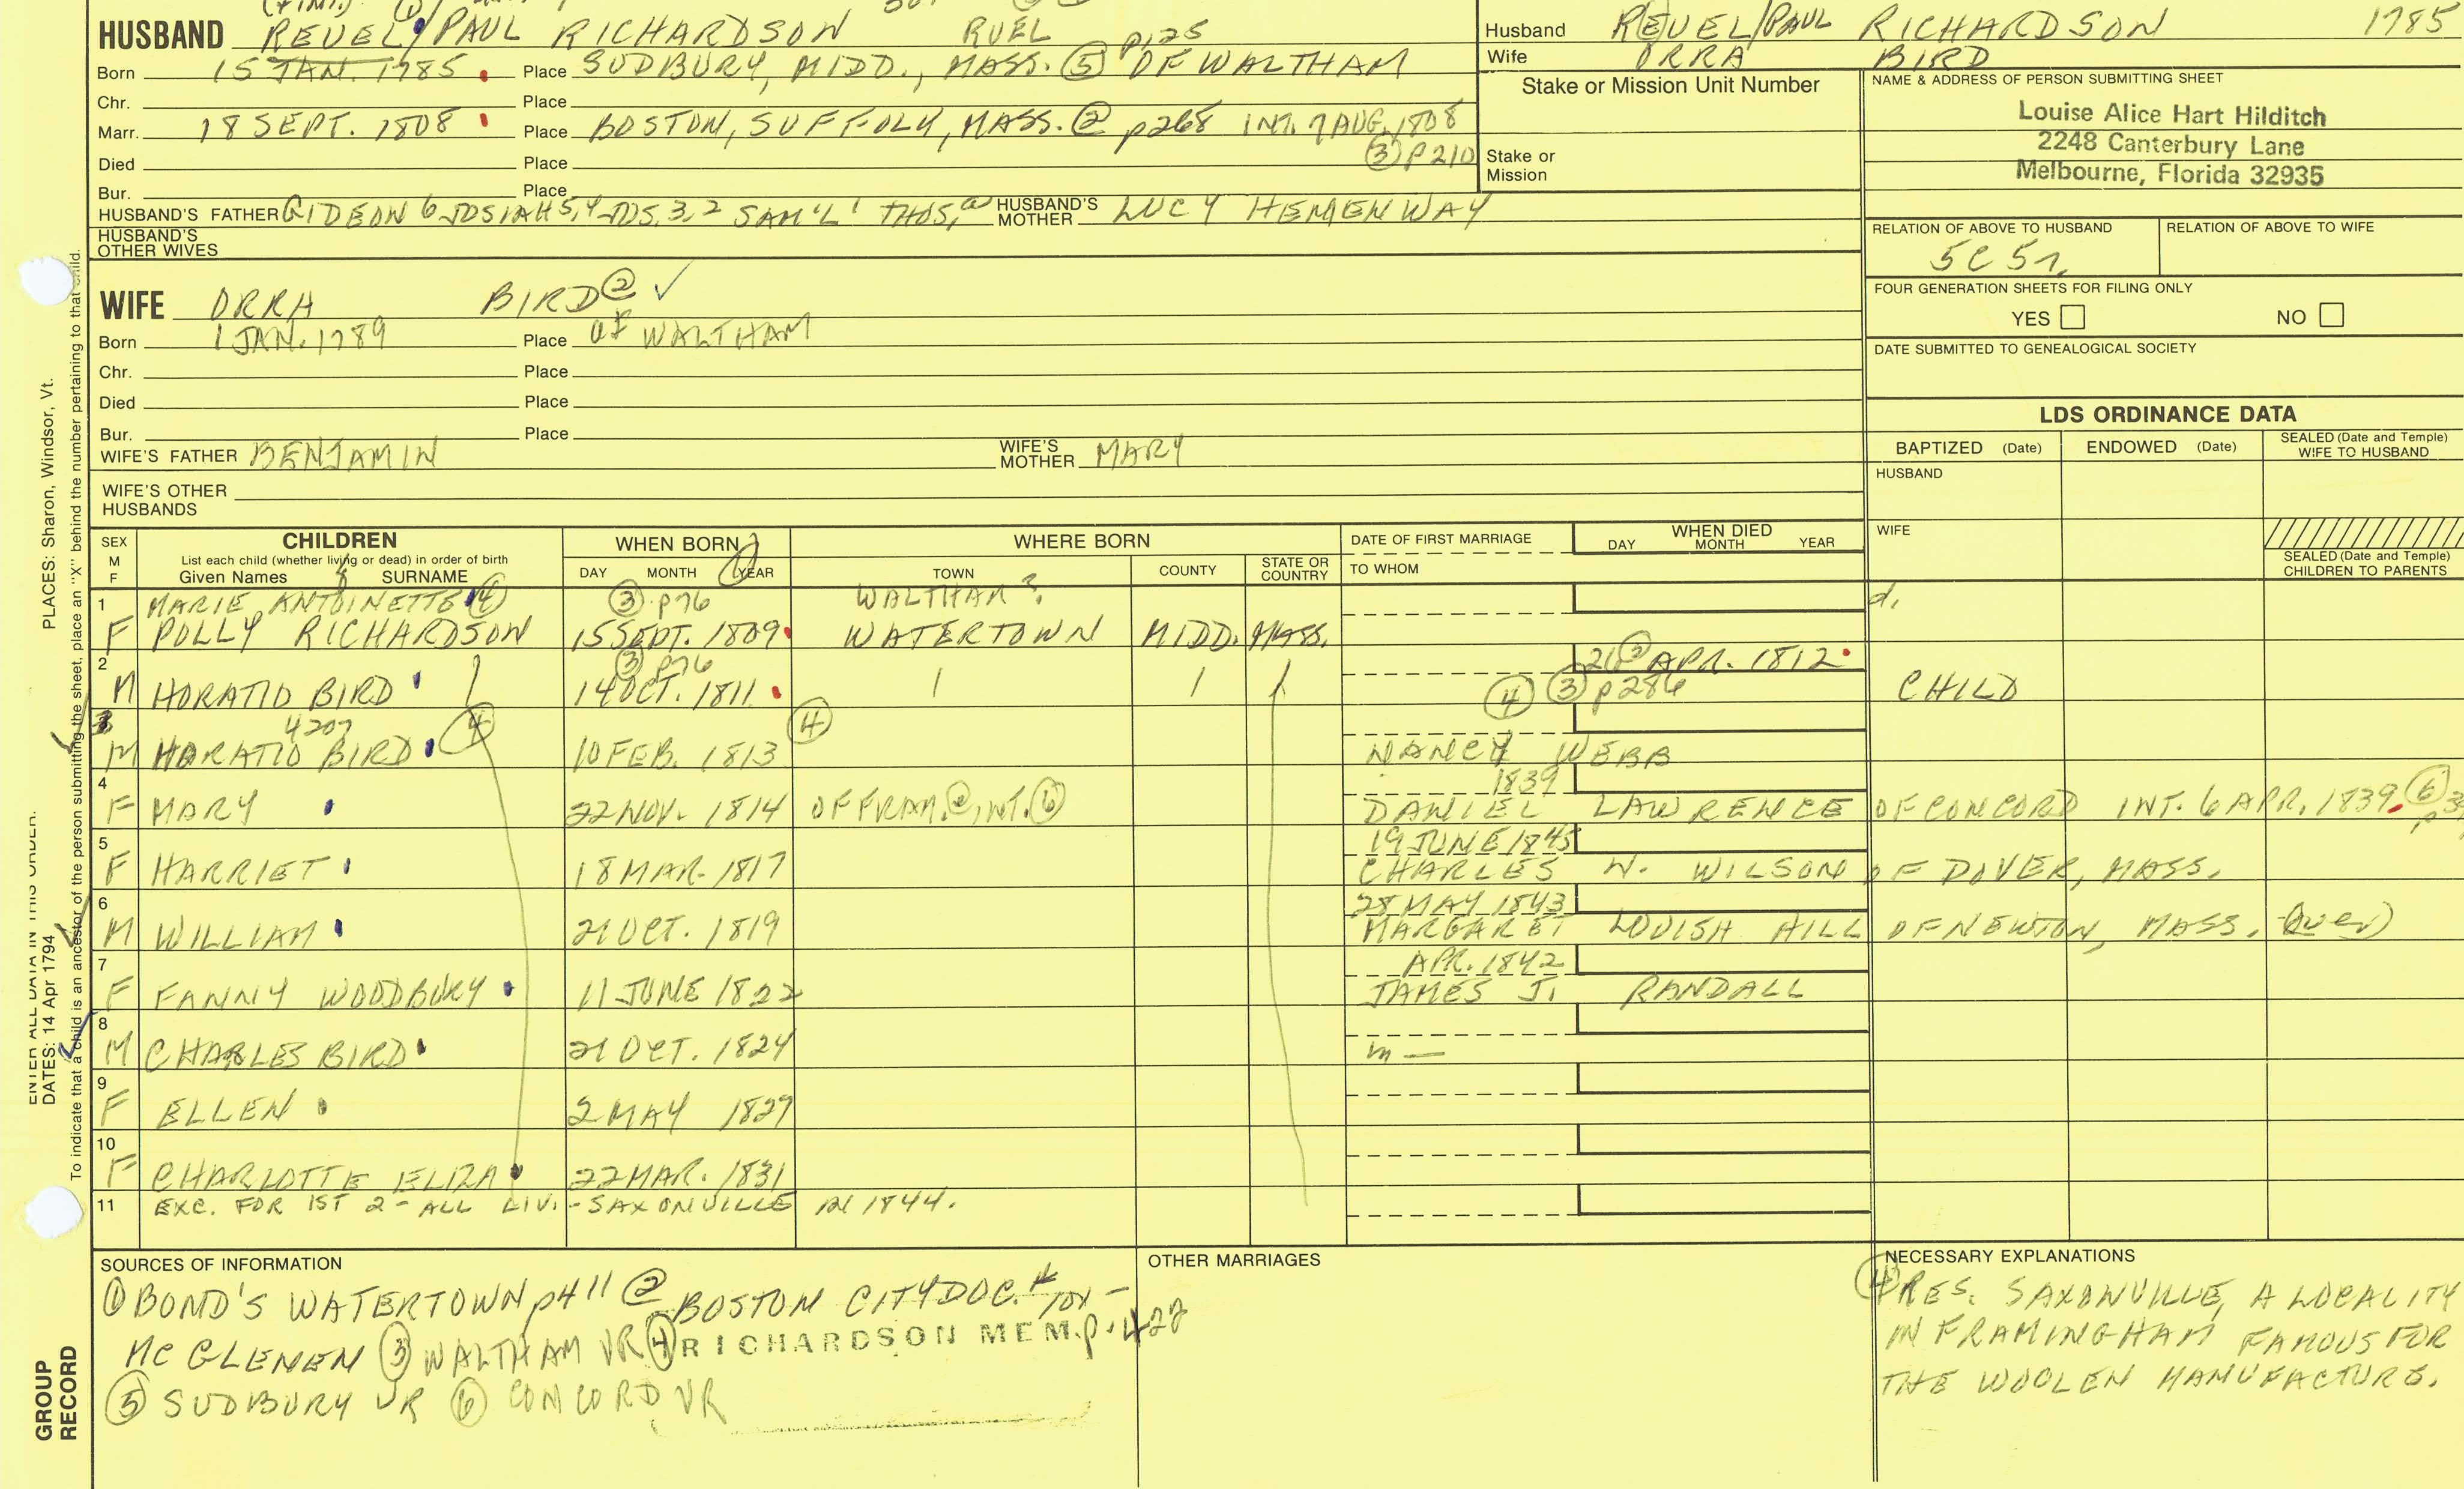 HUSBAND REVEL/PAUL RICHARDSON RUEL p125
Born 15 JAN. 1785. Place SUDBURY, MIDD., MASS. ⑤ OF WALTHAM
Chr. Place
Marr. 18 SEPT. 1808 Place BOSTON, SUFFOLK, MASS. ② p268 INT. 7 AUG. 1808
③ P210
Died Place
Bur. Place
HUSBAND'S FATHER GIDEON 6 JOSIAH 5,4 JOS. 3,2 SAM'L 1 THOS. a HUSBAND'S MOTHER LUCY HEMENWAY
HUSBAND'S OTHER WIVES
Husband REVEL/PAUL RICHARDSON 1785
Wife ORRA BIRD
Stake or Mission Unit Number
Stake or Mission
NAME & ADDRESS OF PERSON SUBMITTING SHEET
Louise Alice Hart Hilditch
2248 Canterbury Lane
Melbourne, Florida 32935
RELATION OF ABOVE TO HUSBAND RELATION OF ABOVE TO WIFE
5C 5r.
FOUR GENERATION SHEETS FOR FILING ONLY
YES NO
DATE SUBMITTED TO GENEALOGICAL SOCIETY
WIFE ORRA BIRD ② ✓
Born 1 JAN. 1789 Place OF WALTHAM
Chr. Place
Died Place
Bur. Place
WIFE'S FATHER BENJAMIN WIFE'S MOTHER MARY
WIFE'S OTHER HUSBANDS
LDS ORDINANCE DATA
BAPTIZED (Date) ENDOWED (Date) SEALED (Date and Temple) WIFE TO HUSBAND
HUSBAND
WIFE
SEALED (Date and Temple) CHILDREN TO PARENTS
SEX M F CHILDREN List each child (whether living or dead) in order of birth Given Names SURNAME
WHEN BORN DAY MONTH YEAR
WHERE BORN TOWN COUNTY STATE OR COUNTRY
DATE OF FIRST MARRIAGE TO WHOM
WHEN DIED DAY MONTH YEAR
1 MARIE ANTOINETTE ④ ③ p76 WALTHAM? d.
F POLLY RICHARDSON 15 SEPT. 1809 WATERTOWN MIDD. MASS.
2 ③ p76 21 ③ APR. 1812
M HORATIO BIRD 14 OCT. 1811 ④ ③ p286 CHILD
3 4207 ④ ④
M HORATIO BIRD 10 FEB. 1813 NANCY WEBB
4 1839
F MARY 22 NOV. 1814 OF FRAM. ②, INT. ⑥ DANIEL LAWRENCE OF CONCORD INT. 6 APR. 1839 ⑥
5 19 JUNE 1845
F HARRIET 18 MAR. 1817 CHARLES W. WILSON OF DOVER, MASS.
6 28 MAY 1843
M WILLIAM 21 OCT. 1819 MARGARET LOUISH HILL OF NEWTON, MASS. (over)
7 APR. 1842
F FANNY WOODBURY 11 JUNE 1822 JAMES J. RANDALL
8
M CHARLES BIRD 21 OCT. 1824 m —
9
F ELLEN 2 MAY 1827
10
F CHARLOTTE ELIZA 22 MAR. 1831
11 EXC. FOR 1ST 2 - ALL LIV. - SAXONVILLE IN 1844.
SOURCES OF INFORMATION
① BOND'S WATERTOWN p411 ② BOSTON CITY DOC. # 101 -
MCGLENEN ③ WALTHAM VR ④ RICHARDSON MEM. p. 422
⑤ SUDBURY VR ⑥ CONCORD VR
OTHER MARRIAGES
NECESSARY EXPLANATIONS
④ RES. SAXONVILLE, A LOCALITY
IN FRAMINGHAM FAMOUS FOR
THE WOOLEN MANUFACTURE.
PLACES: Sharon, Windsor, Vt.
To indicate that a child is an ancestor of the person submitting the sheet, place an "X" behind the number pertaining to that child.
ENTER ALL DATA IN THIS ORDER:
DATES: 14 Apr 1794
GROUP RECORD